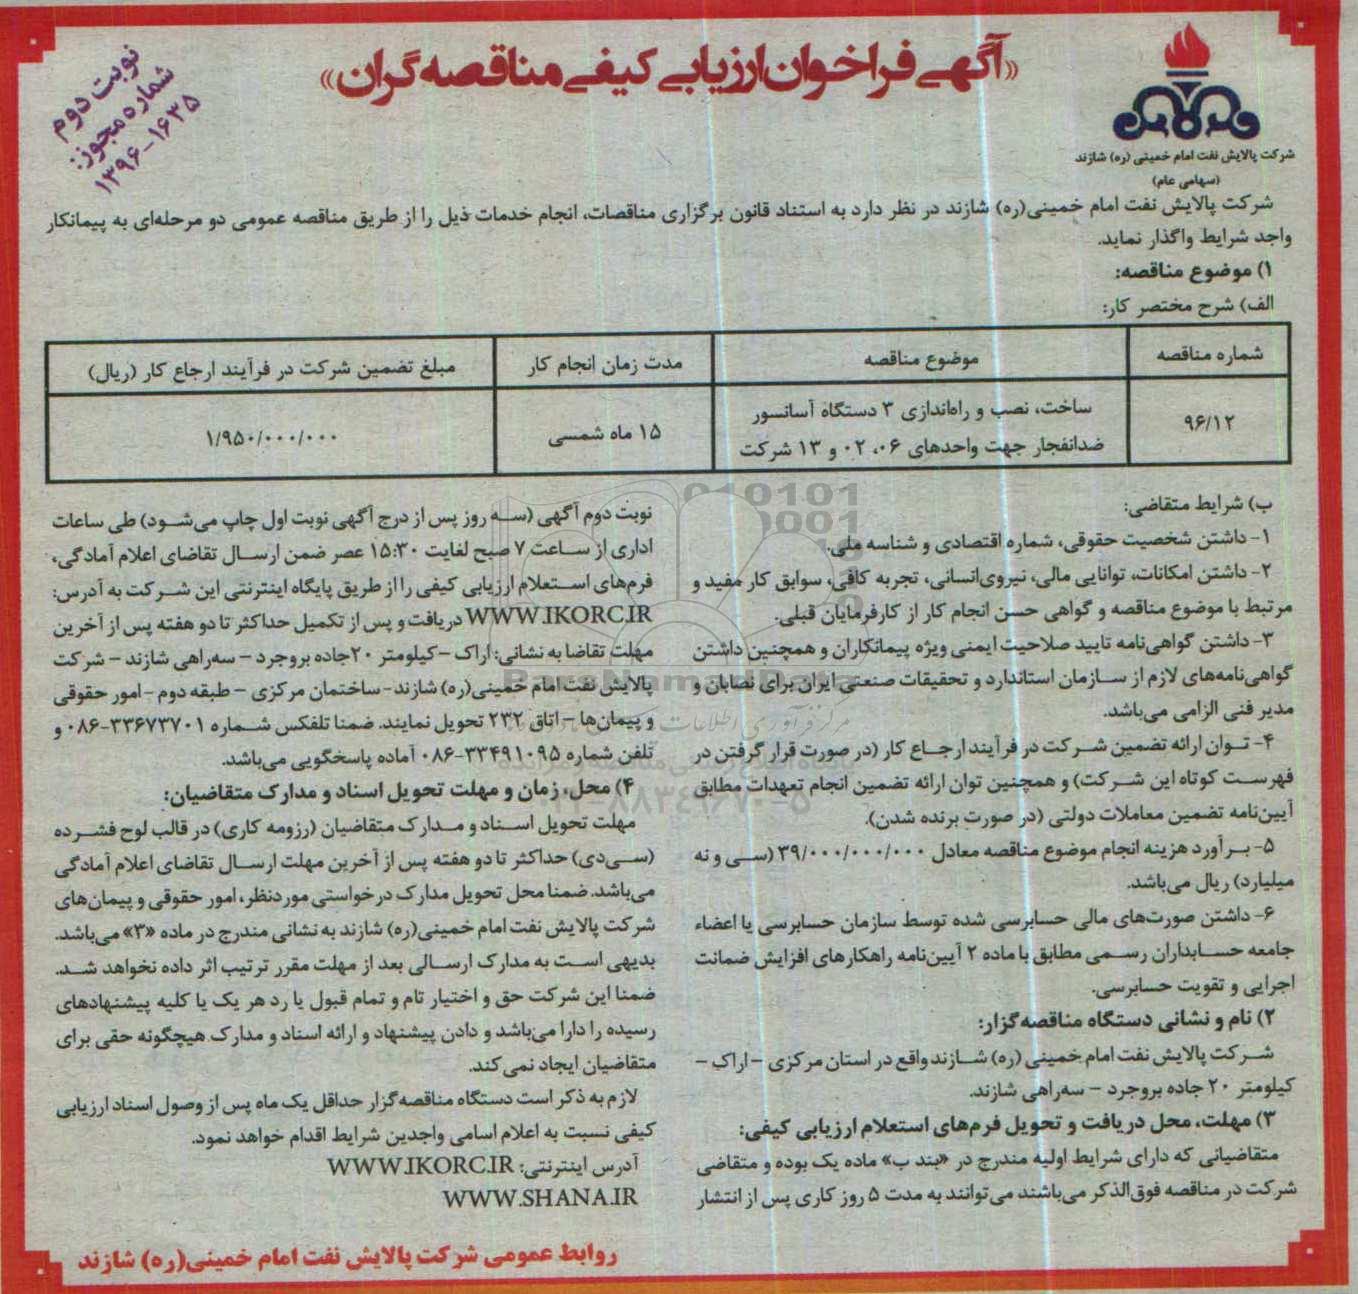 «آگهی فراخوان ارزیابی کیفی مناقصه‌گران»
نوبت دوم
شماره مجوز:
۱۳۹۶-۱۶۳۵
شرکت پالایش نفت امام خمینی (ره) شازند
(سهامی عام)
شرکت پالایش نفت امام خمینی(ره) شازند در نظر دارد به استناد قانون برگزاری مناقصات، انجام خدمات ذیل را از طریق مناقصه عمومی دو مرحله‌ای به پیمانکار
واجد شرایط واگذار نماید.
۱) موضوع مناقصه:
الف) شرح مختصر کار:
شماره مناقصه
موضوع مناقصه
مدت زمان انجام کار
مبلغ تضمین شرکت در فرآیند ارجاع کار (ریال)
۹۶/۱۲
ساخت، نصب و راه‌اندازی ۳ دستگاه آسانسور
ضدانفجار جهت واحدهای ۰۶، ۰۲ و ۱۳ شرکت
۱۵ ماه شمسی
۱/۹۵۰/۰۰۰/۰۰۰
ب) شرایط متقاضی:
۱- داشتن شخصیت حقوقی، شماره اقتصادی و شناسه ملی.
۲- داشتن امکانات، توانایی مالی، نیروی‌انسانی، تجربه کافی، سوابق کار مفید و
مرتبط با موضوع مناقصه و گواهی حسن انجام کار از کارفرمایان قبلی.
۳- داشتن گواهی‌نامه تایید صلاحیت ایمنی ویژه پیمانکاران و همچنین داشتن
گواهی‌نامه‌های لازم از سازمان استاندارد و تحقیقات صنعتی ایران برای نصابان و
مدیر فنی الزامی می‌باشد.
۴- توان ارائه تضمین شرکت در فرآیند ارجاع کار (در صورت قرار گرفتن در
فهرست کوتاه این شرکت) و همچنین توان ارائه تضمین انجام تعهدات مطابق
آیین‌نامه تضمین معاملات دولتی (در صورت برنده شدن).
۵- برآورد هزینه انجام موضوع مناقصه معادل ۳۹/۰۰۰/۰۰۰/۰۰۰ (سی و نه
میلیارد) ریال می‌باشد.
۶- داشتن صورت‌های مالی حسابرسی شده توسط سازمان حسابرسی یا اعضاء
جامعه حسابداران رسمی مطابق با ماده ۲ آیین‌نامه راهکارهای افزایش ضمانت
اجرایی و تقویت حسابرسی.
۲) نام و نشانی دستگاه مناقصه‌گزار:
شرکت پالایش نفت امام خمینی (ره) شازند واقع در استان مرکزی – اراک –
کیلومتر ۲۰ جاده بروجرد – سه‌راهی شازند.
۳) مهلت، محل دریافت و تحویل فرم‌های استعلام ارزیابی کیفی:
متقاضیانی که دارای شرایط اولیه مندرج در «بند ب» ماده یک بوده و متقاضی
شرکت در مناقصه فوق‌الذکر می‌باشند می‌توانند به مدت ۵ روز کاری پس از انتشار
نوبت دوم آگهی (سه روز پس از درج آگهی نوبت اول چاپ می‌شود) طی ساعات
اداری از ساعت ۷ صبح لغایت ۱۵:۳۰ عصر ضمن ارسال تقاضای اعلام آمادگی،
فرم‌های استعلام ارزیابی کیفی را از طریق پایگاه اینترنتی این شرکت به آدرس:
WWW.IKORC.IR دریافت و پس از تکمیل حداکثر تا دو هفته پس از آخرین
مهلت تقاضا به نشانی: اراک – کیلومتر ۲۰ جاده بروجرد – سه‌راهی شازند – شرکت
پالایش نفت امام خمینی(ره) شازند- ساختمان مرکزی – طبقه دوم - امور حقوقی
و پیمان‌ها – اتاق ۲۳۲ تحویل نمایند. ضمنا تلفکس شماره ۳۳۶۷۳۷۰۱-۰۸۶ و
تلفن شماره ۳۳۴۹۱۰۹۵-۰۸۶ آماده پاسخگویی می‌باشد.
۴) محل، زمان و مهلت تحویل اسناد و مدارک متقاضیان:
مهلت تحویل اسناد و مدارک متقاضیان (رزومه کاری) در قالب لوح فشرده
(سی‌دی) حداکثر تا دو هفته پس از آخرین مهلت ارسال تقاضای اعلام آمادگی
می‌باشد. ضمنا محل تحویل مدارک درخواستی موردنظر، امور حقوقی و پیمان‌های
شرکت پالایش نفت امام خمینی(ره) شازند به نشانی مندرج در ماده «۳» می‌باشد.
بدیهی است به مدارک ارسالی بعد از مهلت مقرر ترتیب اثر داده نخواهد شد.
ضمنا این شرکت حق و اختیار تام و تمام قبول یا رد هر یک یا کلیه پیشنهادهای
رسیده را دارا می‌باشد و دادن پیشنهاد و ارائه اسناد و مدارک هیچگونه حقی برای
متقاضیان ایجاد نمی‌کند.
لازم به ذکر است دستگاه مناقصه‌گزار حداقل یک ماه پس از وصول اسناد ارزیابی
کیفی نسبت به اعلام اسامی واجدین شرایط اقدام خواهد نمود.
آدرس اینترنتی: WWW.IKORC.IR
WWW.SHANA.IR
روابط عمومی شرکت پالایش نفت امام خمینی(ره) شازند
ParsNamadData